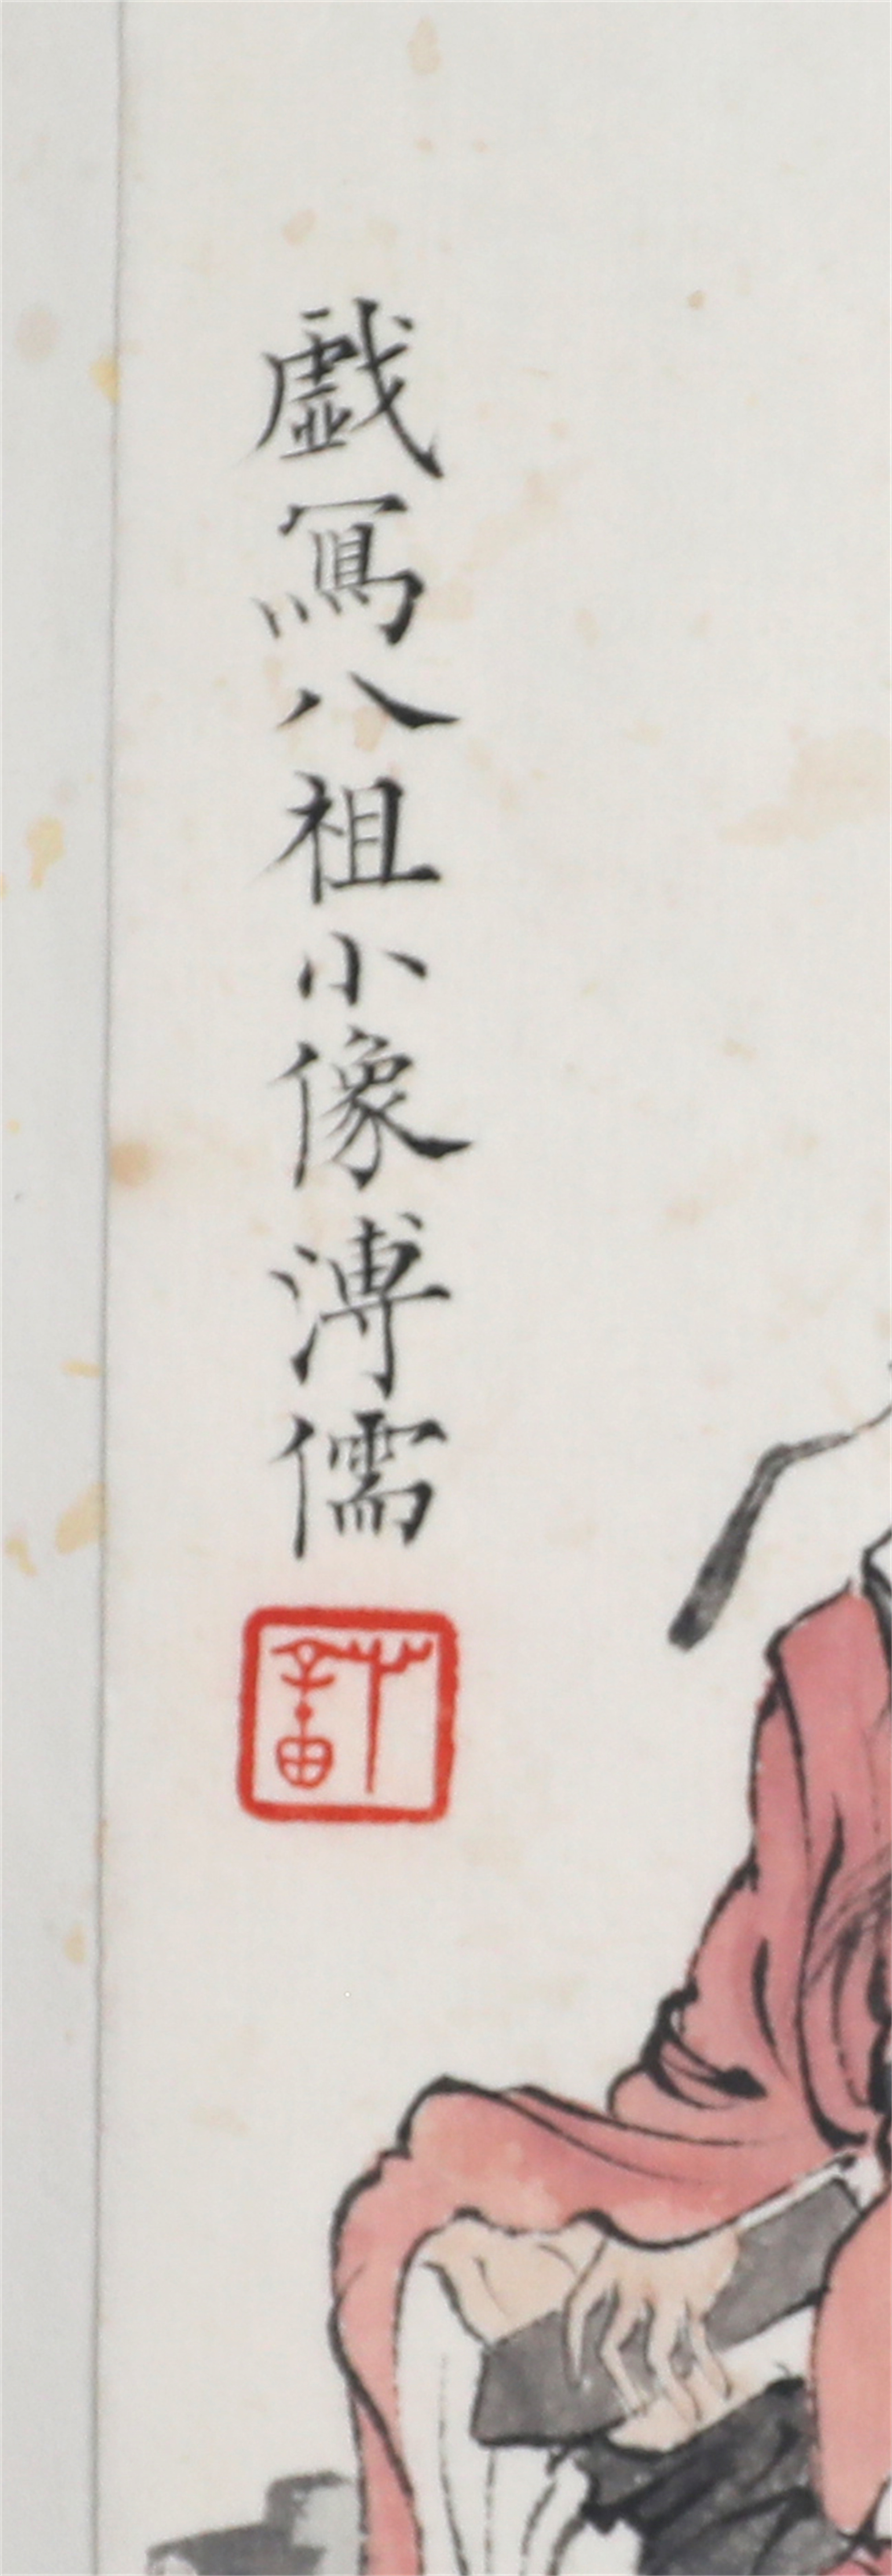 戯寫八祖小像溥儒